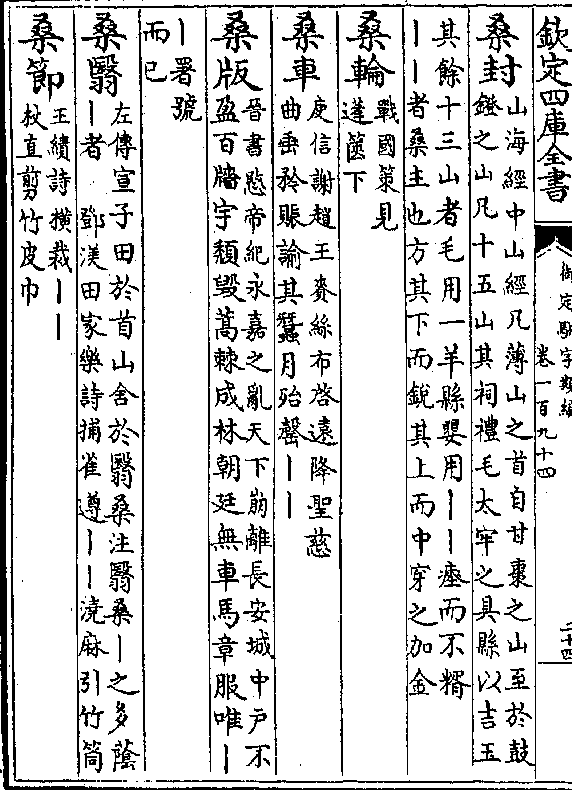 欽定四庫全書
御定駢字類編
卷一百九十四
二十四
桑封
山海經中山經凡薄山之首自甘棗之山至於鼓
鐙之山凡十五山其祠禮毛太牢之具縣以吉玉
其餘十三山者毛用一羊縣嬰用丨丨瘞而不糈
丨丨者桑主也方其下而銳其上而中穿之加金
桑輪
戰國策見
蓬箇下
桑車
庾信謝趙王賚絲布啓遠降聖慈
曲垂矜賑諭其蠶月殆罄丨丨
桑版
晉書愍帝紀永嘉之亂天下崩離長安城中戶不
盈百牆宇頹毀蒿棘成林朝廷無車馬章服唯丨
丨署號
而已
桑翳
左傳宣子田於首山舍於翳桑注翳桑丨之多蔭
丨者 鄧渼田家樂詩捕雀遵丨丨澆麻引竹筒
桑節
王績詩橫裁丨丨
杖直剪竹皮巾